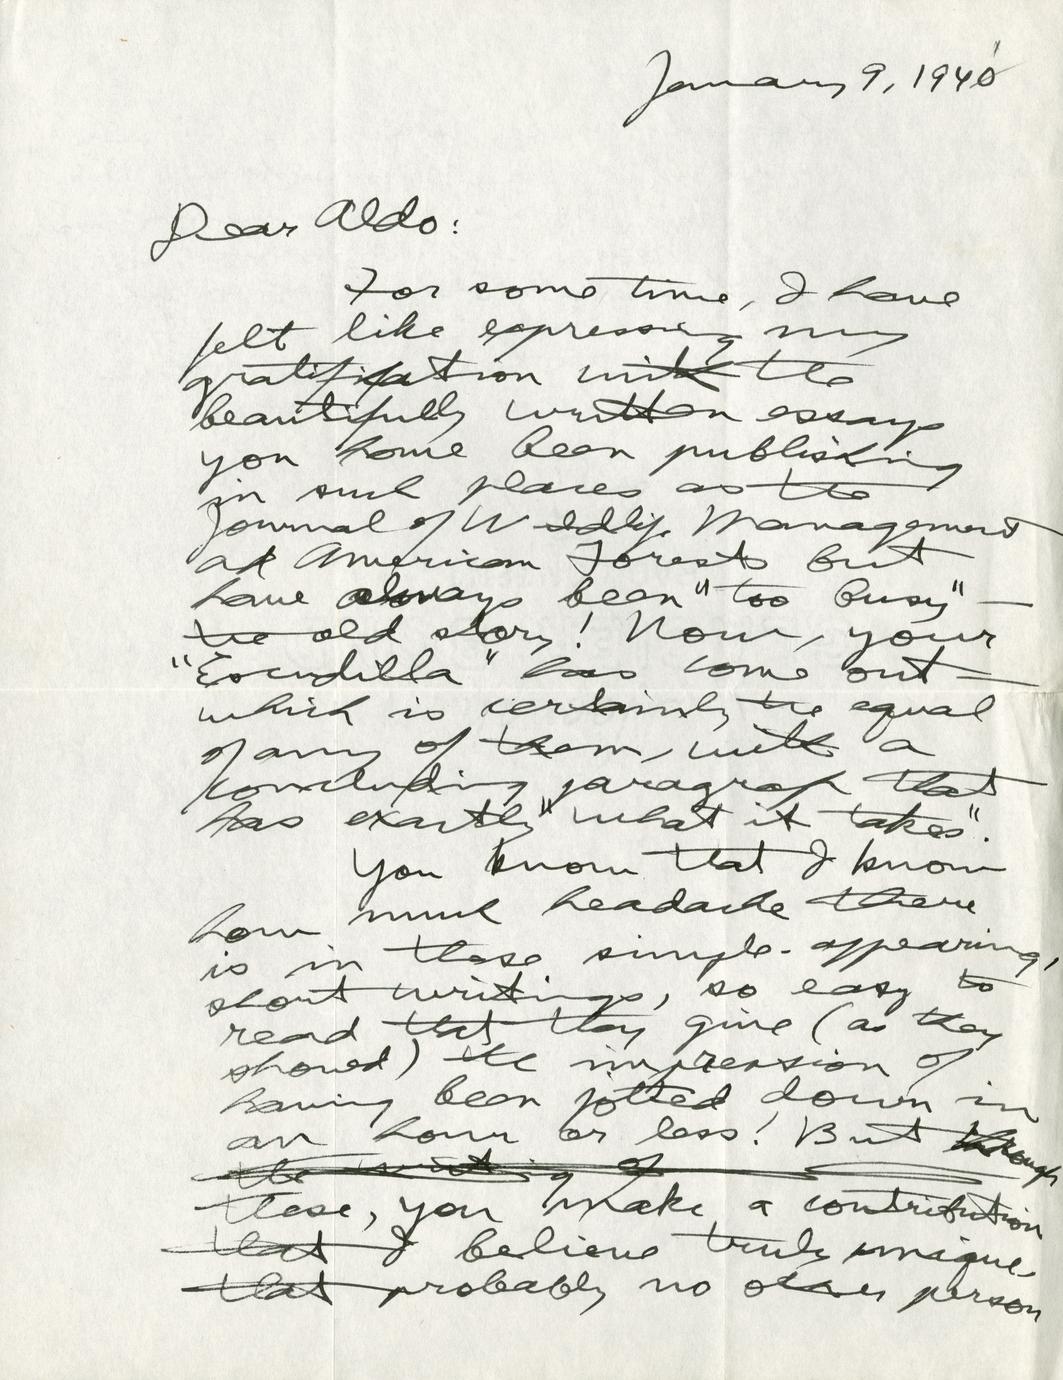 January 9, 1940
Dear Aldo:
For some time, I have
felt like expressing my
gratification with the
beautifully written essays
you have been publishing
in such places as the
Journal of Wildlife Management
and American Forests but
have always been "too busy" —
the old story! Now, your
"Escudilla" has come out —
which is certainly the equal
of any of them, with a
concluding paragraph that
has exactly "what it takes".
You know that I know
how much headache there
is in these simple-appearing,
short writings, so easy to
read that they give (as they
should) the impression of
having been jotted down in
an hour or less! But through
the writing of
these, you make a contribution
that I believe truly unique
that probably no other person